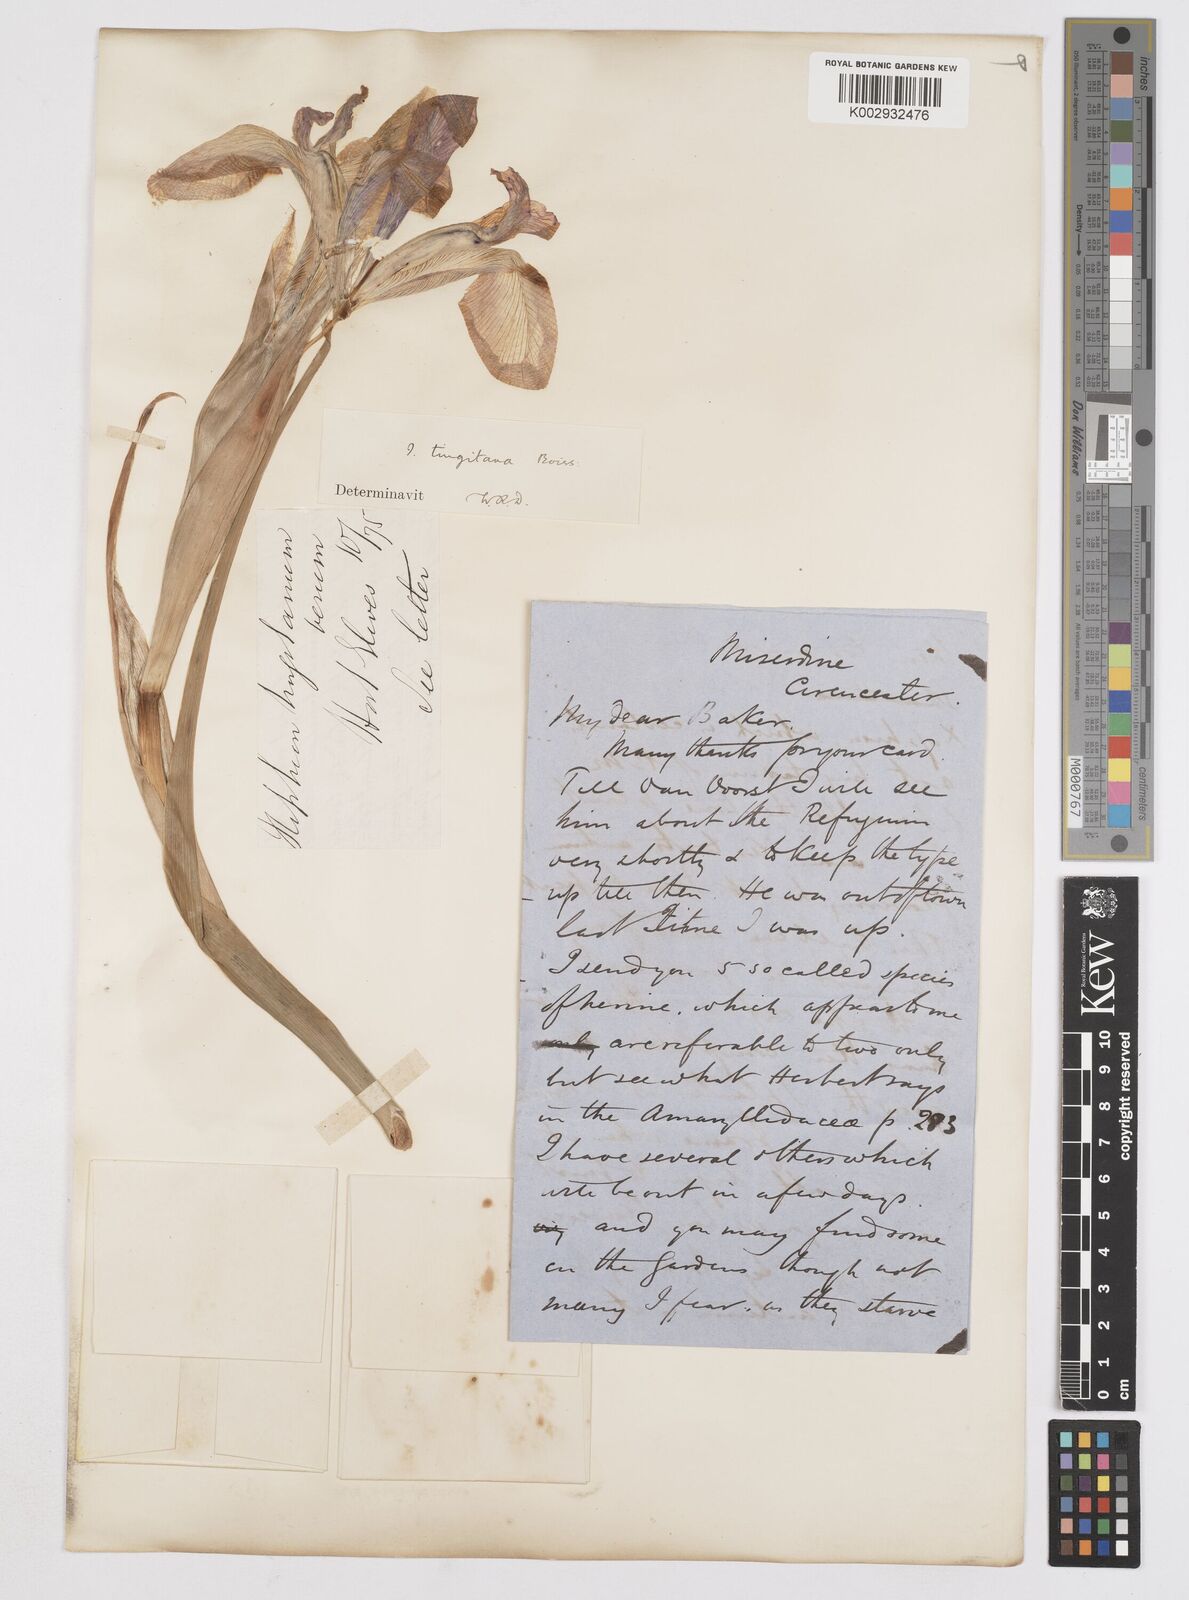 ROYAL BOTANIC GARDENS KEW
K002932476
I. tingitana Boiss:
Determinavit W.R.D.
Xiphion tingitanum
verum
Hort Elwes 10/75
See letter
Miserdine
Cirencester.
My dear Baker.
Many thanks for your card.
Tell Van Voorst I will see
him about the Refugium
very shortly & to keep the type
up till then. He was out of town
last time I was up.
I send you 5 so called species
of nerine. which appear to me
only are referable to two only
but see what Herbert says
in the Amaryllidaceæ p. 283
I have several others which
will be out in a few days.
and you may find some
in the Gardens though not
many I fear. as they starve
inches
Density
Don Williams
M000767
Kew
Royal Botanic Gardens
copyright reserved
0 1 2 3 4 5 6 7 8 9 10
cm